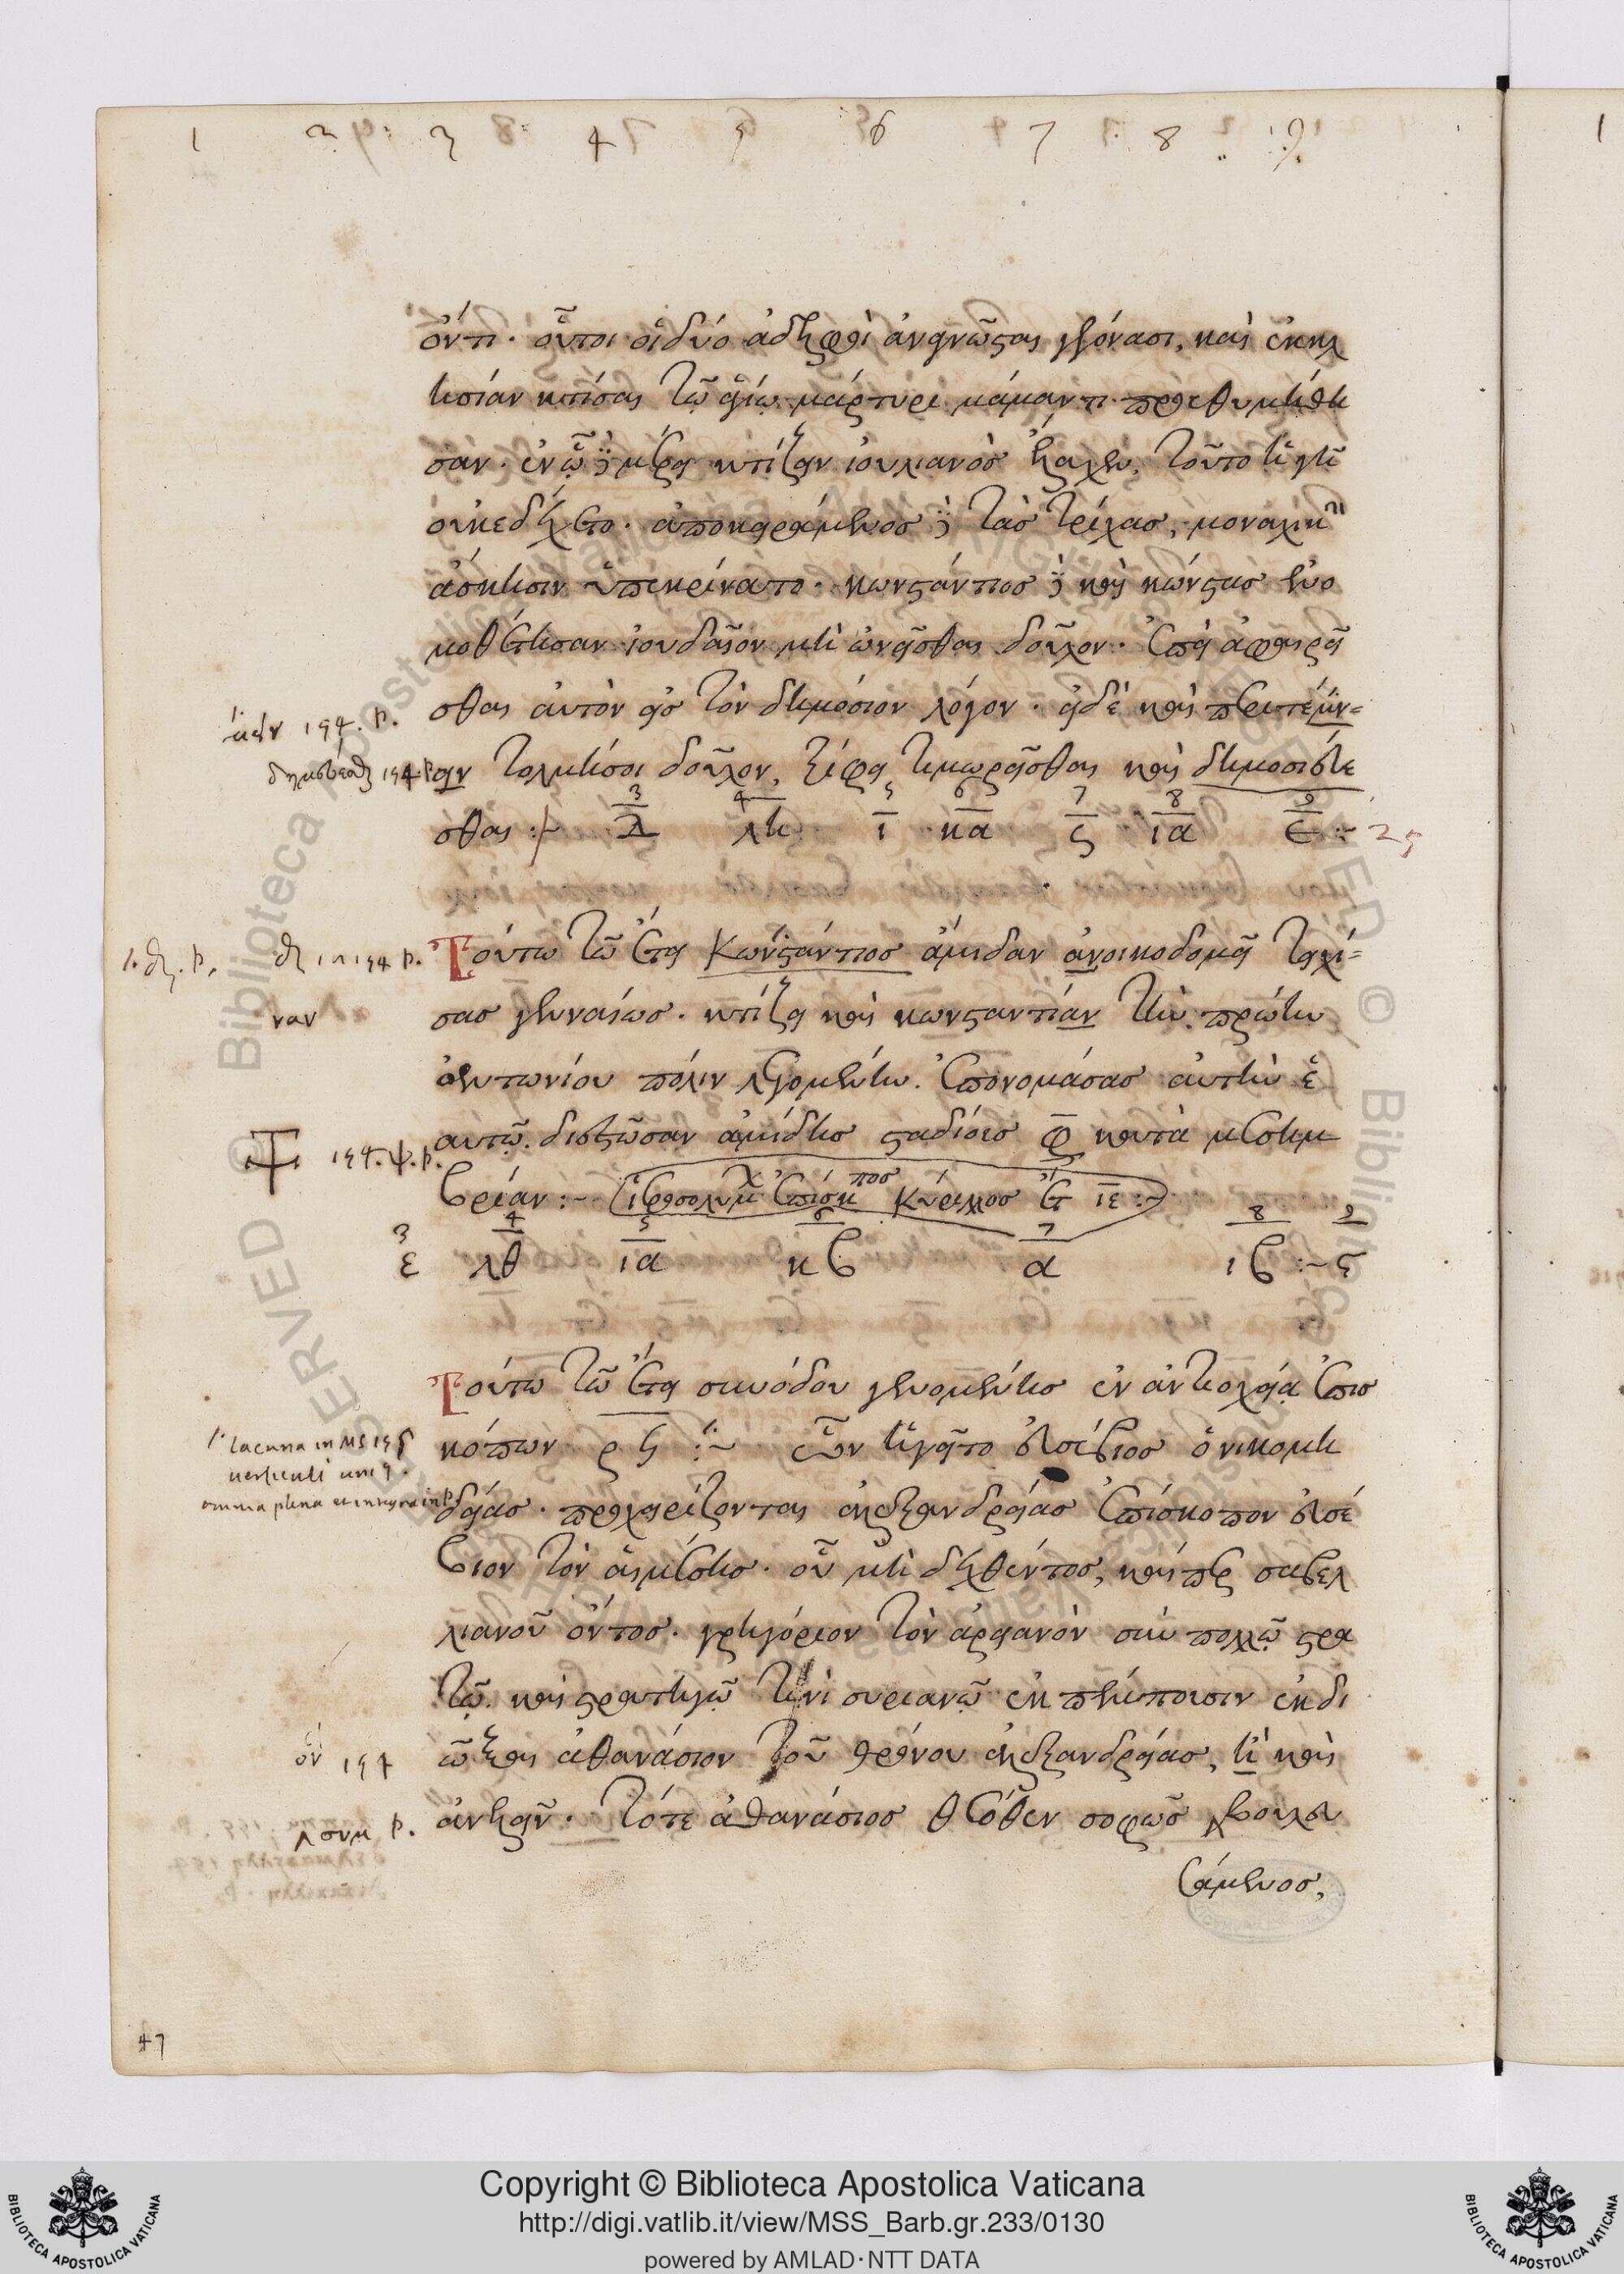 1 2 3 4 5 6 7 8 9
όντι. οὗτοι οἱ δύο ἀδελφοὶ ἀναγνῶσται γεγόνασι, καὶ ἐκκλ
ησίαν κτίσαι τῷ ἁγίῳ μάρτυρι μάμαντι προεθυμήθη
σαν. ἐν ᾧ δὲ μέρει κτίζειν ἰουλιανὸς ἔλαχεν, τοῦτο ἡ γῆ
οὐκ ἐδέχετο. ἀποκειράμενος δὲ τὰς τρίχας, μοναχικὴν
ἄσκησιν ὑπεκρίνατο. κωνστάντιος δὲ καὶ κώνστας ἐνο
μοθέτησαν ἰουδαῖον μὴ ὠνεῖσθαι δοῦλον. ἐπεὶ ἀφαιρεῖ
σθαι αὐτὸν εἰς τὸν δημόσιον λόγον. εἰ δὲ καὶ περιτέμν=
ειν τολμήσοι δοῦλον, ξίφει τιμωρεῖσθαι καὶ δημοσιεύε
σθαι :~ 3 λ 4 λη 5 ι 6 κα 7 ς 8 ια 9 ε :~ 25
194. P.
194 P
Τούτῳ τῷ ἔτει Κωνστάντιος ἄμιδαν ἀνοικοδομεῖ τειχί=
σας γενναίως. κτίζει καὶ κωνσταντίαν τὴν πρώην
ἀντωνίου πόλιν λεγομένην. ἐπονομάσας αὐτὴν ἑ
αυτῷ. διεστῶσαν ἀμίδης σταδίοις ψ κατὰ μεσημ
βρίαν :~ ἱεροσολύμ ἐπίσκοπος Κύριλλος ἔτ ιε :~
in 194 P.
ναν
194. ψ. P.
3 ε 4 λθ 5 ια 6 κβ 7 α 8 ιβ :~ 9 ς
Τούτῳ τῷ ἔτει συνόδου γενομένης ἐν ἀντιοχείᾳ ἐπισ
κόπων ρλ :~ ὧν ἡγεῖτο εὐσέβιος ὁ νικομη
δείας. προχειρίζονται ἀλεξανδρείας ἐπίσκοπον εὐσέ
βιον τὸν ἐμέσης. οὗ μὴ δεχθέντος, καίπερ σαβελ
λιανοῦ ὄντος. γρηγόριον τὸν ἀρειανὸν σὺν πολλῷ στρα
τῷ. καὶ στρατηγῷ τινὶ συριανῷ ἐκπέμπουσιν ἐκδι
ῶξαι ἀθανάσιον τοῦ θρόνου ἀλεξανδρείας, ἢ καὶ
ἀνελεῖν. τότε ἀθανάσιος θεόθεν σοφῶς βουλευ
σάμενος,
lacuna in MS 195
uersiculi unius.
omnia plena et integra in P.
ὃν 194
P.
47
Copyright © Biblioteca Apostolica Vaticana
http://digi.vatlib.it/view/MSS_Barb.gr.233/0130
powered by AMLAD·NTT DATA
BIBLIOTECA APOSTOLICA VATICANA
BIBLIOTECA APOSTOLICA VATICANA